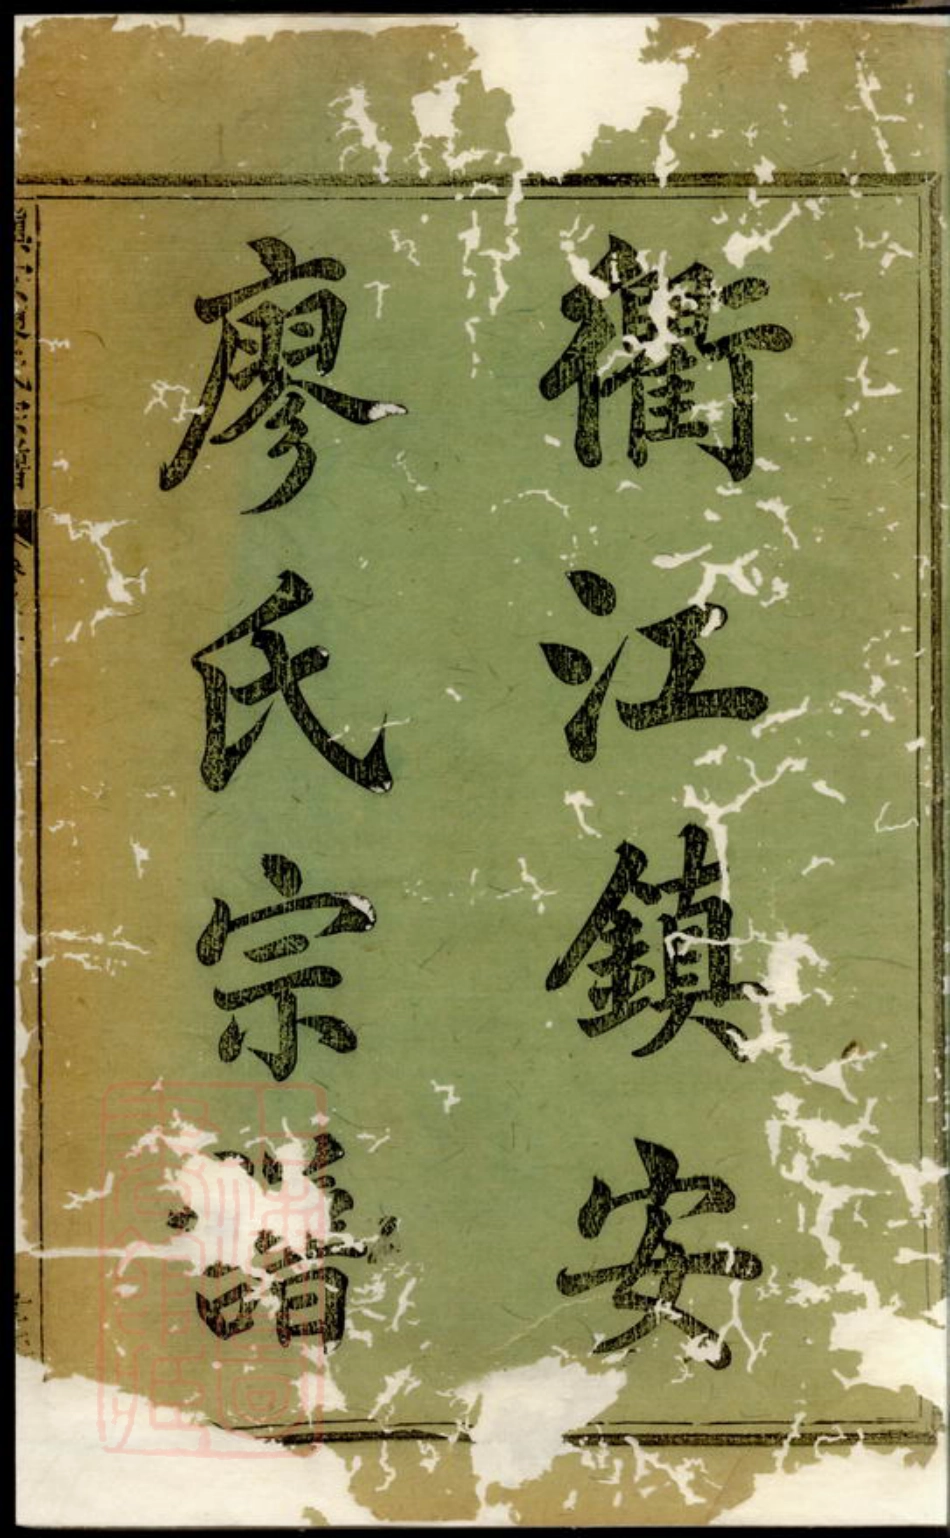 衢江鎮安
廖氏宗譜